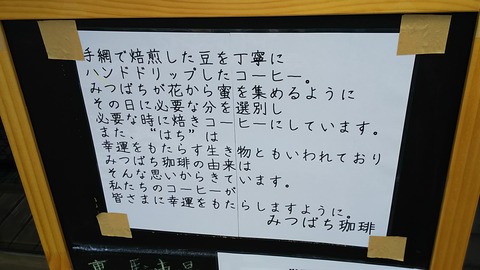 手網で焙煎した豆を丁寧に
ハンドドリップしたコーヒー。
みつばちが花から蜜を集めるように
その日に必要な分を選別し
必要な時に焙きコーヒーにしています。
また、“はち”は
幸運をもたらす生き物ともいわれており
みつばち珈琲の由来は
そんな思いからきています。
私たちのコーヒーが
皆さまに幸運をもたらしますように。
みつばち珈琲